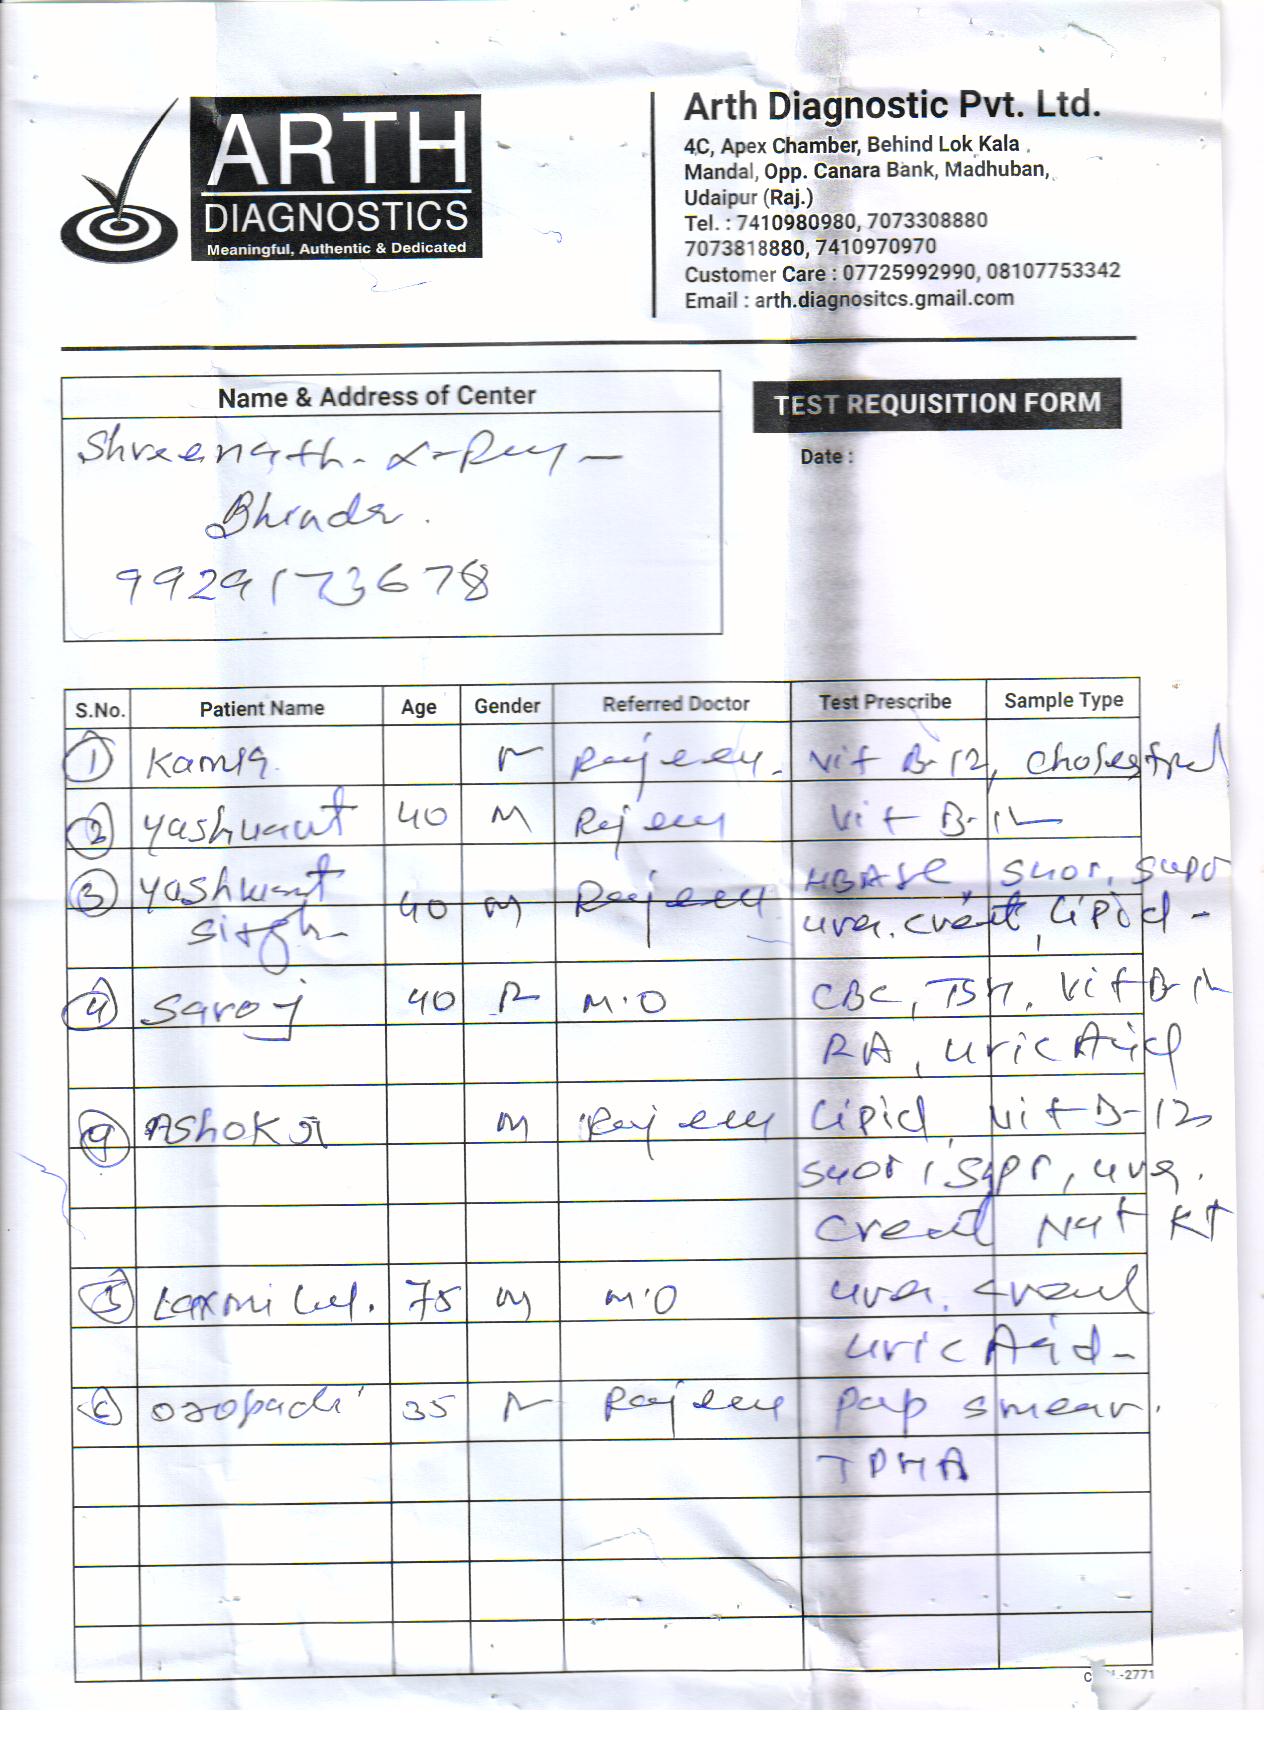 ARTH
DIAGNOSTICS
Meaningful, Authentic & Dedicated
Arth Diagnostic Pvt. Ltd.
4C, Apex Chamber, Behind Lok Kala
Mandal, Opp. Canara Bank, Madhuban,
Udaipur (Raj.)
Tel. : 7410980980, 7073308880
7073818880, 7410970970
Customer Care : 07725992990, 08107753342
Email : arth.diagnositcs.gmail.com
Name & Address of Center
TEST REQUISITION FORM
Date :
Shreenath. X-Ray —
Bhinder.
9929173678
S.No. Patient Name Age Gender Referred Doctor Test Prescribe Sample Type
1 Kamla Rajeev. Vit B-12, Cholestrol
2 Yashwant 40 M Rajeev Vit B-12
3 Yashwant 40 M Rajeev HBA1c, SGOT, SGPT
Singh urea. creat, Lipid -
4 Saroj 40 F M.O CBC, TSH, Vit B-12
RA, uric Acid
9 Ashok M Rajeev Lipid, Vit B-12
SGOT, SGPT, urea.
Creat Na+ K+
5 Laxmi Lal. 75 M M.O urea. creat
uric Acid -
35 Rajeev Pap smear.
TPHA
-2771